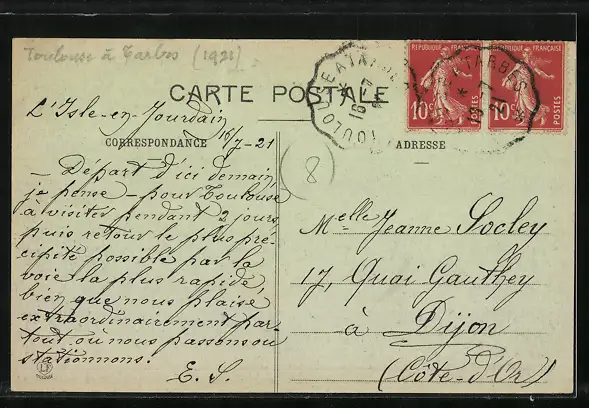 Toulouse à Tarbes (1921)
CARTE POSTALE
L'Isle-en-Jourdain
16/7-21
CORRESPONDANCE
— Départ d'ici demain,
je pense — pour Toulouse
à visiter pendant 2 jours
puis retour le plus pré-
cipité possible par la
voie la plus rapide,
bien que nous plaise
extraordinairement par-
tout où nous passons ou
stationnons.
E. S.
8
RÉPUBLIQUE FRANÇAISE
10c
POSTES
RÉPUBLIQUE FRANÇAISE
10c
POSTES
TOULOUSE A TARBES
ADRESSE
Melle Jeanne Socley
17, Quai Gauthey
à Dijon
(Côte-d'Or)
LF